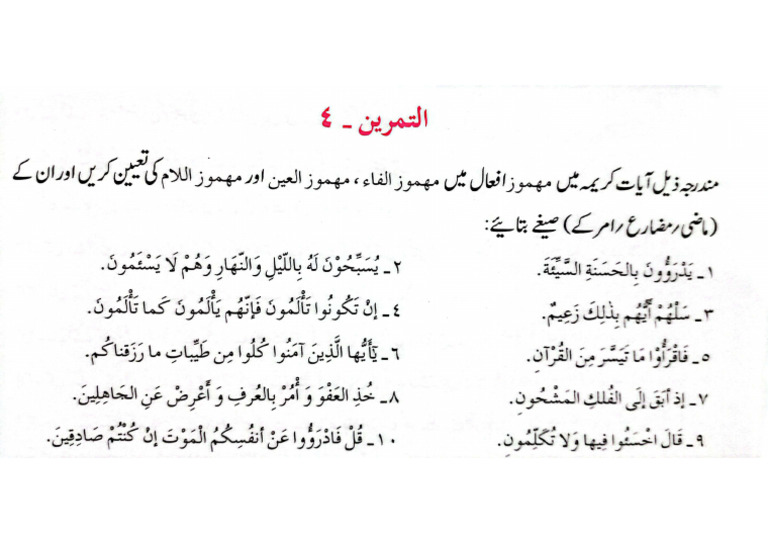 التمرين ۔ ٤
مندرجہ ذیل آیات کریمہ میں مهموز افعال میں مهموز الفاء ، مهموز العین اور مهموز اللام کی تعیین کریں اور ان کے
(ماضی / مضارع / امر کے) صیغے بتائیے:
١۔ يَدْرَؤُونَ بِالحَسَنَةِ السَّيِّئَةَ. ٢۔ يُسَبِّحُوْنَ لَهُ بِاللَّيْلِ وَالنَّهَارِ وَهُمْ لَا يَسْئَمُونَ.
٣۔ سَلْهُمْ أَيُّهُم بِذٰلِكَ زَعِيمٌ. ٤۔ إنْ تَكُونُوا تَأْلَمُونَ فَإنَّهُم يَأْلَمُونَ كَما تَأْلَمُونَ.
٥۔ فَاقْرَأُوْا مَا تَيَسَّرَ مِنَ القُرْآنِ. ٦۔ يَٰأَيُّها الَّذِينَ آمَنُوا كُلُوا مِن طَيِّباتِ ما رَزَقناكُم.
٧۔ إذ أبَقَ إلَى الفُلكِ المَشْحُونِ. ٨۔ خُذِ العَفْوَ وَ أْمُرْ بِالعُرفِ وَ أَعْرِضْ عَنِ الجَاهِلِينَ.
٩۔ قَالَ اخْسَئُوا فِيها وَلا تُكَلِّمُونِ. ١٠۔ قُلْ فَادْرَؤُوا عَنْ أنفُسِكُمُ الْمَوْتَ إنْ كُنْتُمْ صَادِقِينَ.